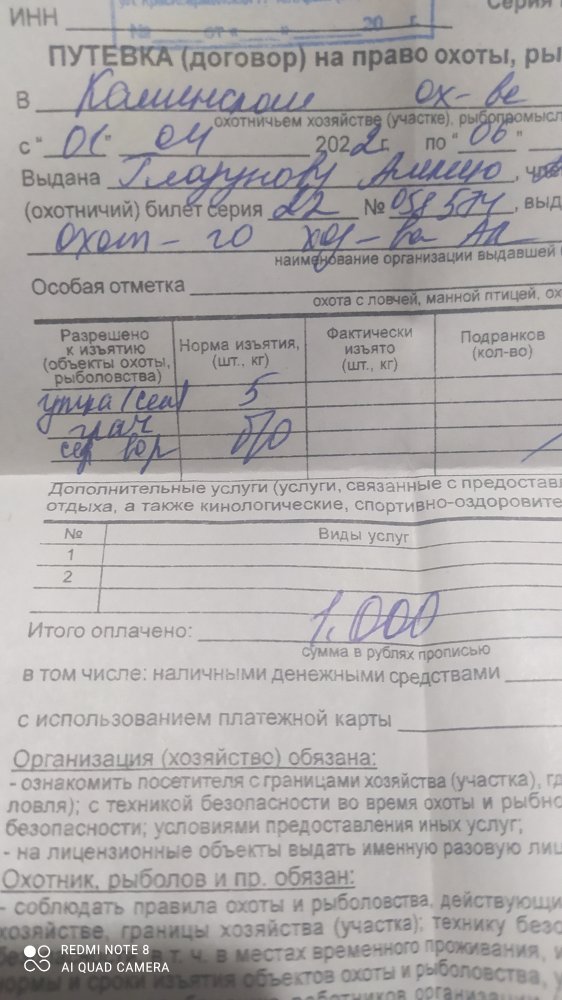 ИНН
Серия
№ от « » 20 г.
ПУТЕВКА (договор) на право охоты, ры
В Каменском ох-ве
охотничьем хозяйстве (участке), рыбопромысл
с "01" 04 2022 г. по "06"
Выдана
(охотничий) билет серия 22 № , выд
Охот-го хоз-ва Ал
наименование организации выдавшей
Особая отметка
охота с ловчей, манной птицей, ох
Разрешено к изъятию (объекты охоты, рыболовства) Норма изъятия, (шт., кг) Фактически изъято (шт., кг) Подранков (кол-во)
утка (сел) 5
грач б/о
сер вор
Дополнительные услуги (услуги, связанные с предостав
отдыха, а также кинологические, спортивно-оздоровите
№ Виды услуг
1
2
Итого оплачено: 1.000
сумма в рублях прописью
в том числе: наличными денежными средствами
с использованием платежной карты
Организация (хозяйство) обязана:
- ознакомить посетителя с границами хозяйства (участка), гд
ловля); с техникой безопасности во время охоты и рыбно
безопасности; условиями предоставления иных услуг;
- на лицензионные объекты выдать именную разовую лиц
Охотник, рыболов и пр. обязан:
- соблюдать правила охоты и рыболовства, действующи
хозяйстве, границы хозяйства (участка); технику безо
в т. ч. в местах временного проживания, и
нормы и сроки изъятия объектов охоты и рыболовства, у
REDMI NOTE 8
AI QUAD CAMERA